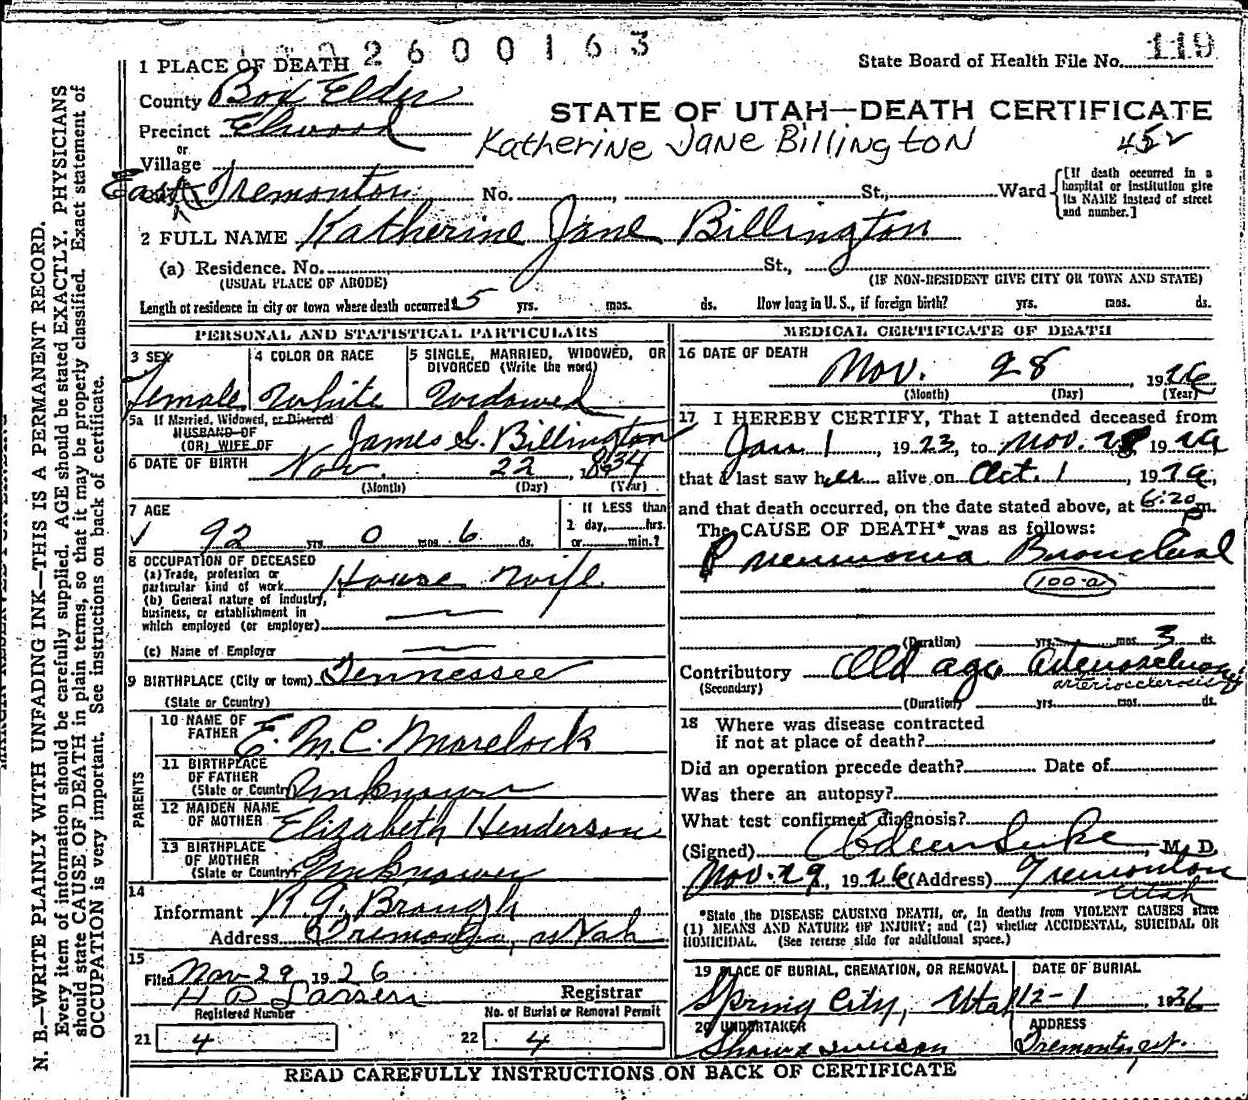 2600163
1 PLACE OF DEATH
State Board of Health File No. 119
County Box Elder
STATE OF UTAH—DEATH CERTIFICATE
Precinct Elwood
Katherine Jane Billington
452
or
Village
East Tremonton No. St., Ward
[If death occurred in a hospital or institution give its NAME instead of street and number.]
2 FULL NAME Katherine Jane Billington
(a) Residence. No. St.,
(USUAL PLACE OF ABODE) (IF NON-RESIDENT GIVE CITY OR TOWN AND STATE)
Length of residence in city or town where death occurred 15 yrs. mos. ds. How long in U. S., if foreign birth? yrs. mos. ds.
PERSONAL AND STATISTICAL PARTICULARS
3 SEX
Female
4 COLOR OR RACE
White
5 SINGLE, MARRIED, WIDOWED, OR DIVORCED (Write the word)
Widowed
5a If Married, Widowed, or Divorced
HUSBAND OF
(OR) WIFE OF James G. Billington
6 DATE OF BIRTH Nov. 22, 1834
(Month) (Day) (Year)
7 AGE
92 yrs. 0 mos. 6 ds.
If LESS than
1 day, hrs.
or min.?
8 OCCUPATION OF DECEASED
(a) Trade, profession or
particular kind of work House Wife
(b) General nature of industry,
business, or establishment in
which employed (or employer)
(c) Name of Employer
9 BIRTHPLACE (City or town) Tennessee
(State or Country)
PARENTS
10 NAME OF
FATHER E. M. C. Morelock
11 BIRTHPLACE
OF FATHER
(State or Country) Unknown
12 MAIDEN NAME
OF MOTHER Elizabeth Henderson
13 BIRTHPLACE
OF MOTHER
(State or Country) Unknown
14
Informant R. G. Brough
Address Tremonton, Utah
15
Filed Nov-29 1926
H D Larsen Registrar
Registered Number No. of Burial or Removal Permit
21 4 22 4
MEDICAL CERTIFICATE OF DEATH
16 DATE OF DEATH
Nov. 28, 1926
(Month) (Day) (Year)
17 I HEREBY CERTIFY, That I attended deceased from
Jan 1, 1923, to Nov. 28 1926
that I last saw her alive on Oct. 1, 1926,
and that death occurred, on the date stated above, at 6:20 P m.
The CAUSE OF DEATH* was as follows:
Pneumonia Bronchial
100-a
(Duration) yrs. mos. 3 ds.
Contributory Old age
(Secondary) arteriosclerosis
(Duration) yrs. mos. ds.
18 Where was disease contracted
if not at place of death?
Did an operation precede death? Date of
Was there an autopsy?
What test confirmed diagnosis?
(Signed) M. D.
Nov. 29, 1926 (Address) Tremonton
Utah
*State the DISEASE CAUSING DEATH, or, in deaths from VIOLENT CAUSES state
(1) MEANS AND NATURE OF INJURY; and (2) whether ACCIDENTAL, SUICIDAL OR
HOMICIDAL. (See reverse side for additional space.)
19 PLACE OF BURIAL, CREMATION, OR REMOVAL DATE OF BURIAL
Spring City, Utah 12-1, 1926
20 UNDERTAKER ADDRESS
Shaw & Iverson Tremonton, Ut.
READ CAREFULLY INSTRUCTIONS ON BACK OF CERTIFICATE
N. B.—WRITE PLAINLY WITH UNFADING INK—THIS IS A PERMANENT RECORD.
Every item of information should be carefully supplied. AGE should be stated EXACTLY. PHYSICIANS
should state CAUSE OF DEATH in plain terms, so that it may be properly classified. Exact statement of
OCCUPATION is very important. See instructions on back of certificate.